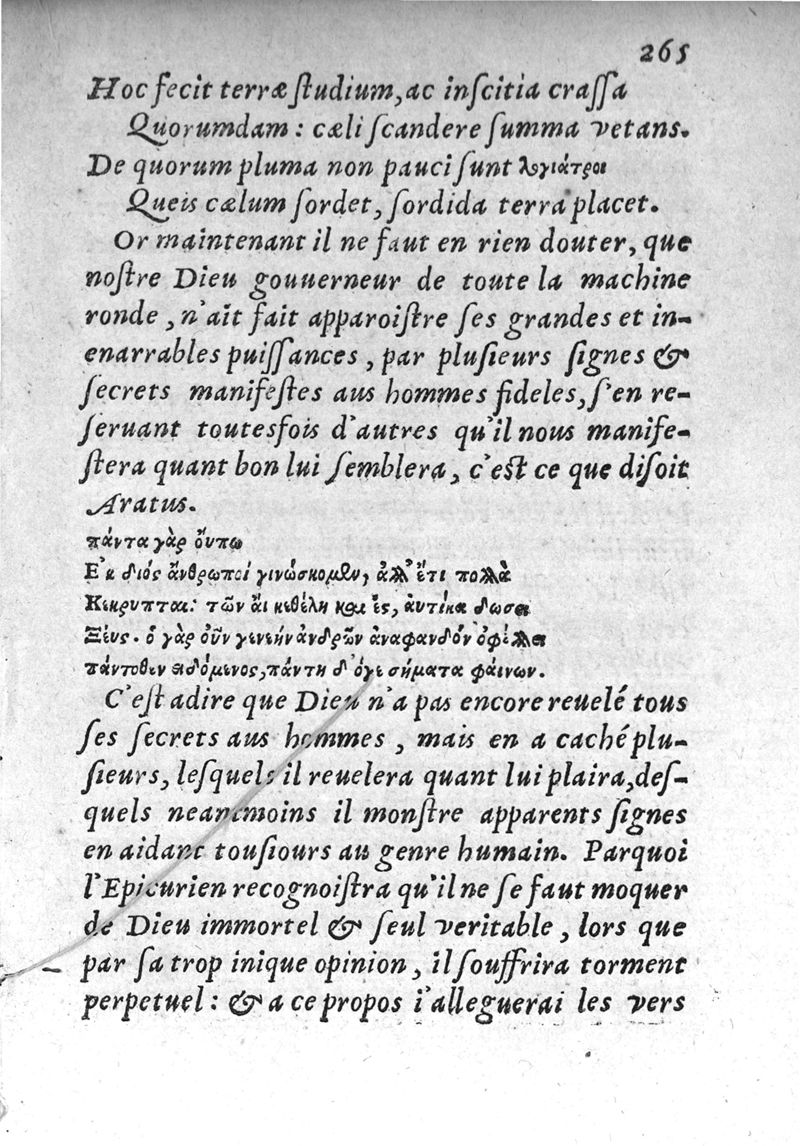 265
Hoc fecit terræ ſtudium, ac inſcitia craſſa
Quorumdam : cæli ſcandere ſumma vetans.
De quorum pluma non pauci ſunt λογιάτροι
Queis cælum ſordet, ſordida terra placet.
Or maintenant il ne faut en rien douter, que
noſtre Dieu gouuerneur de toute la machine
ronde, n'ait fait apparoiſtre ſes grandes et in-
enarrables puiſſances, par pluſieurs ſignes &
ſecrets manifeſtes aus hommes fideles, ſ'en re-
ſeruant toutesfois d'autres qu'il nous manife-
ſtera quant bon lui ſemblera, c'eſt ce que diſoit
Aratus.
πάντα γὰρ οὔπω
Εκ διός ἄνθρωποι γινώσκομεν, ἀλλ' ἔτι πολλὰ
Κεκρυπται: τῶν ἄι κεθέλη και ἐς, ἀυτίκα δωσει
Ξέυς. ὁ γὰρ οὖν γενεὴν ἀνδρῶν ἀναφανδὸν ὀφέλλει
πάντοθεν ειδόμενος, πάντη δ'όγε σήματα φάινων.
C'eſt adire que Dieu n'a pas encore reuelé tous
ſes ſecrets aus hommes, mais en a caché plu-
ſieurs, leſquels il reuelera quant lui plaira, deſ-
quels neantmoins il monſtre apparents ſignes
en aidant touſiours au genre humain. Parquoi
l'Epicurien recognoiſtra qu'il ne ſe faut moquer
de Dieu immortel & ſeul veritable, lors que
par ſa trop inique opinion, il ſouffrira torment
perpetuel : & a ce propos i'alleguerai les vers